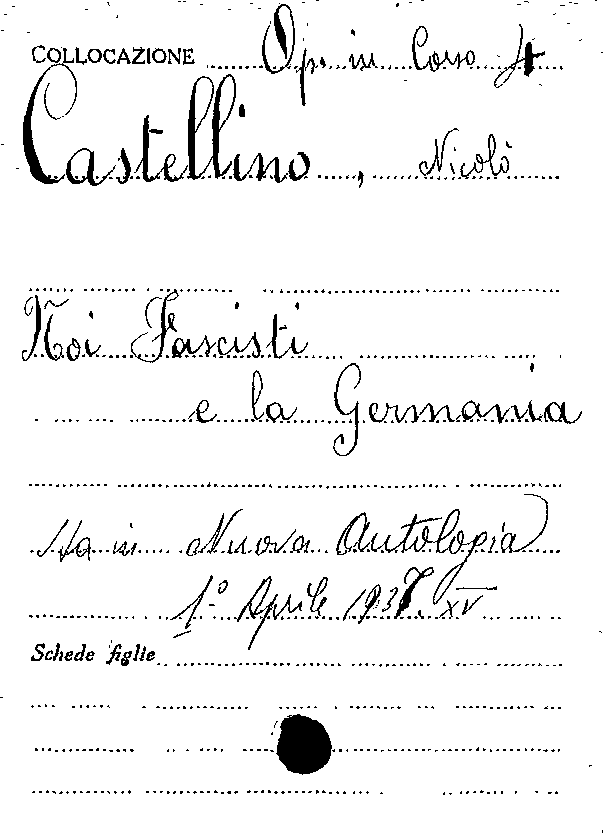 COLLOCAZIONE Op. in Corso 4
Castellino, Nicolò
Noi Fascisti
e la Germania
Sta in Nuova Antologia
1º Aprile 1937. XV
Schede figlie